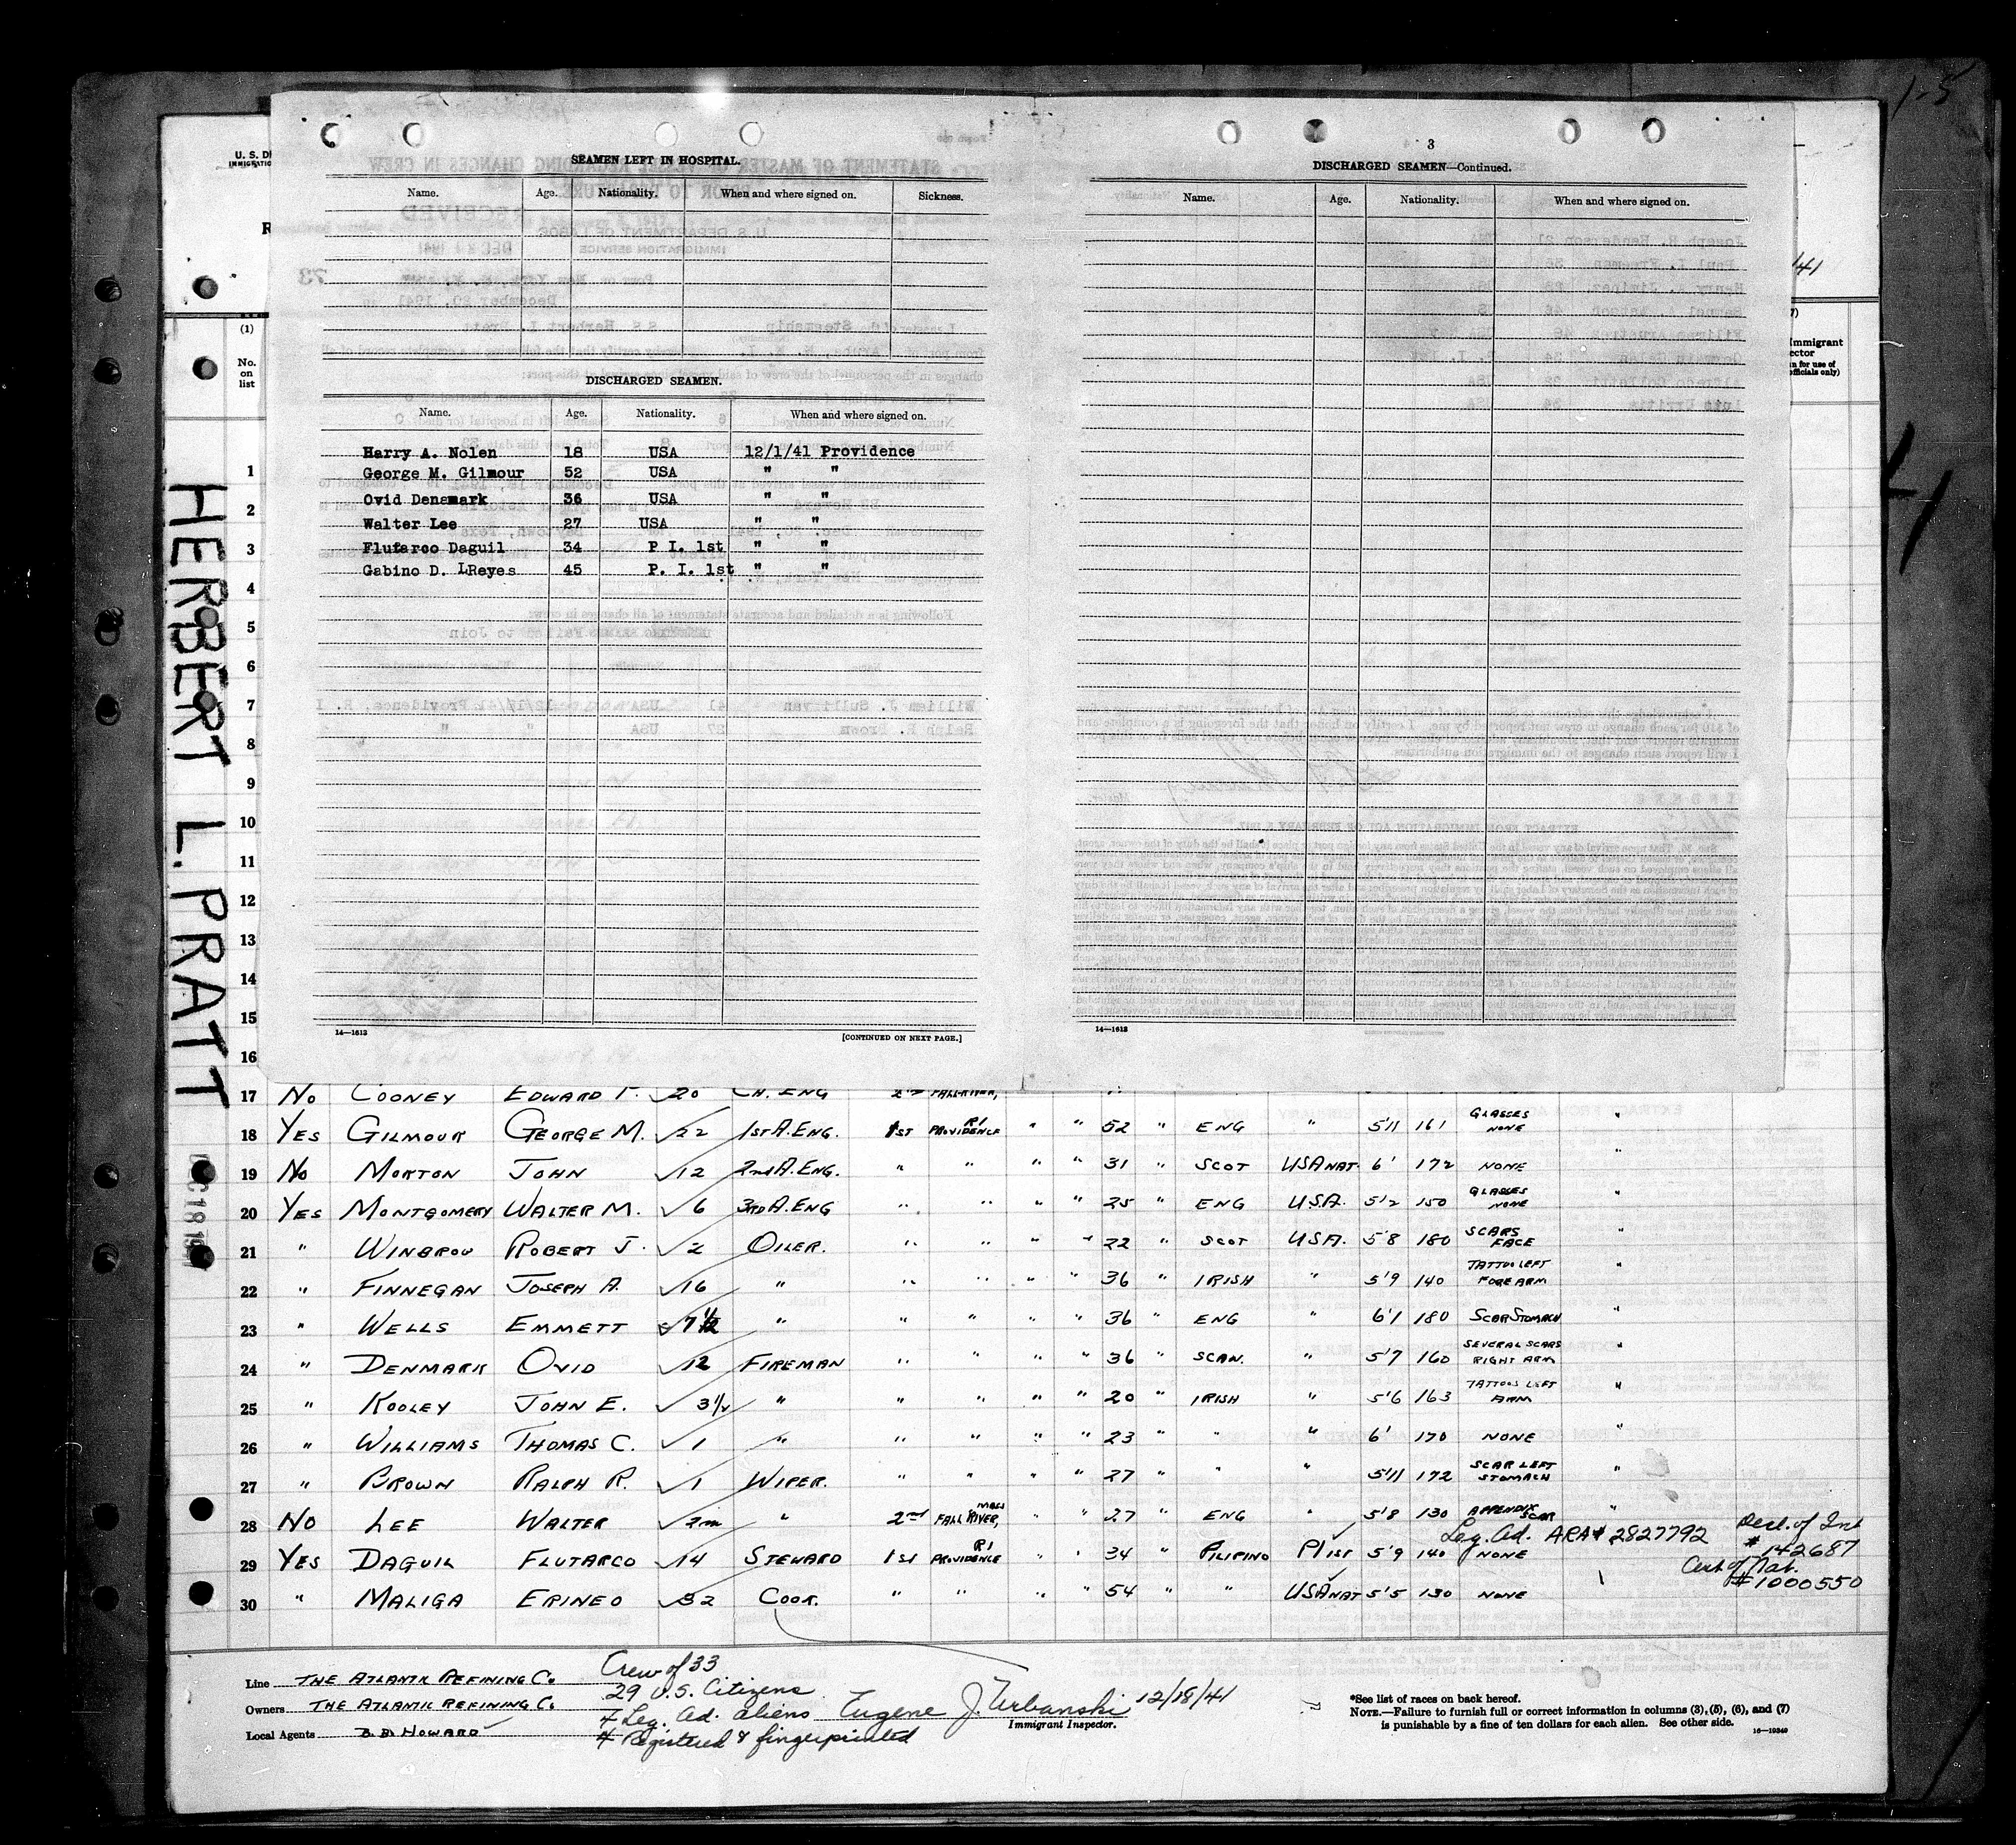 1-5
U. S. D
IMMIGRATIO
R
41
(1)
No.
on
list
Immigrant
ector
n for use of
officials only)
SEAMEN LEFT IN HOSPITAL.
Name. Age. Nationality. When and where signed on. Sickness.
DISCHARGED SEAMEN.
Name. Age. Nationality. When and where signed on.
Harry A. Nolen 18 USA 12/1/41 Providence
George M. Gilmour 52 USA " "
Ovid Denemark 36 USA " "
Walter Lee 27 USA " "
Flutarco Daguil 34 P I. 1st " "
Gabino D. LReyes 45 P. I. 1st " "
14—1613
[CONTINUED ON NEXT PAGE.]
3
DISCHARGED SEAMEN—Continued.
Name. Age. Nationality. When and where signed on.
14—1613
HERBERT L. PRATT
1
2
3
4
5
6
7
8
9
10
11
12
13
14
15
16
17 No COONEY EDWARD F. 20 CH. ENG 2nd FALL RIVER,
18 YES GILMOUR GEORGE M. 22 1ST A. ENG. 1ST PROVIDENCE RI " " 52 " ENG " 5'11 161 GLASSES NONE "
19 No MORTON JOHN 12 2nd A. ENG. " " " " 31 " SCOT USA NAT. 6' 172 NONE "
20 YES MONTGOMERY WALTER M. 6 3RD A. ENG " " " " 25 " ENG U.S.A. 5'2 150 GLASSES NONE "
21 " WINBROW ROBERT J. 2 OILER. " " " " 22 " SCOT USA. 5'8 180 SCARS FACE "
22 " FINNEGAN JOSEPH A. 16 " " " " " 36 " IRISH " 5'9 140 TATTOO LEFT FOREARM "
23 " WELLS EMMETT 7 1/2 " " " " " 36 " ENG " 6'1 180 SCAR STOMACH "
24 " DENMARK OVID 12 FIREMAN " " " " 36 " SCAN. " 5'7 160 SEVERAL SCARS RIGHT ARM "
25 " KOOLEY JOHN E. 3 1/2 " " " " " 20 " IRISH " 5'6 163 TATTOOS LEFT ARM "
26 " WILLIAMS THOMAS C. 1 " " " " " 23 " " " 6' 170 NONE "
27 " BROWN RALPH R. 1 WIPER. " " " " 27 " " " 5'11 172 SCAR LEFT STOMACH "
28 No LEE WALTER 2m " 2nd FALL RIVER, MASS " " 27 " ENG " 5'8 130 APPENDIX SCAR "
Leg. Ad. ARA# 2827792 Decl. of Int # 142687
29 YES DAGUIL FLUTARCO 14 STEWARD 1ST PROVIDENCE RI " " 34 " PILIPINO PI 1ST 5'9 140 NONE
Cert of Nat. #1000550
30 " MALIGA ERINEO 32 COOK. " " " " 54 " " USA NAT 5'5 130 NONE
Line THE ATLANTIC REFINING CO.
Owners THE ATLANTIC REFINING CO.
Local Agents B. B. HOWARD
Crew of 33
29 U.S. Citizens
4 Leg. Ad. aliens
4 Registered & fingerprinted
Eugene J. Urbanski 12/18/41
Immigrant Inspector.
*See list of races on back hereof.
NOTE.—Failure to furnish full or correct information in columns (3), (5), (6), and (7)
is punishable by a fine of ten dollars for each alien. See other side.
16—19340